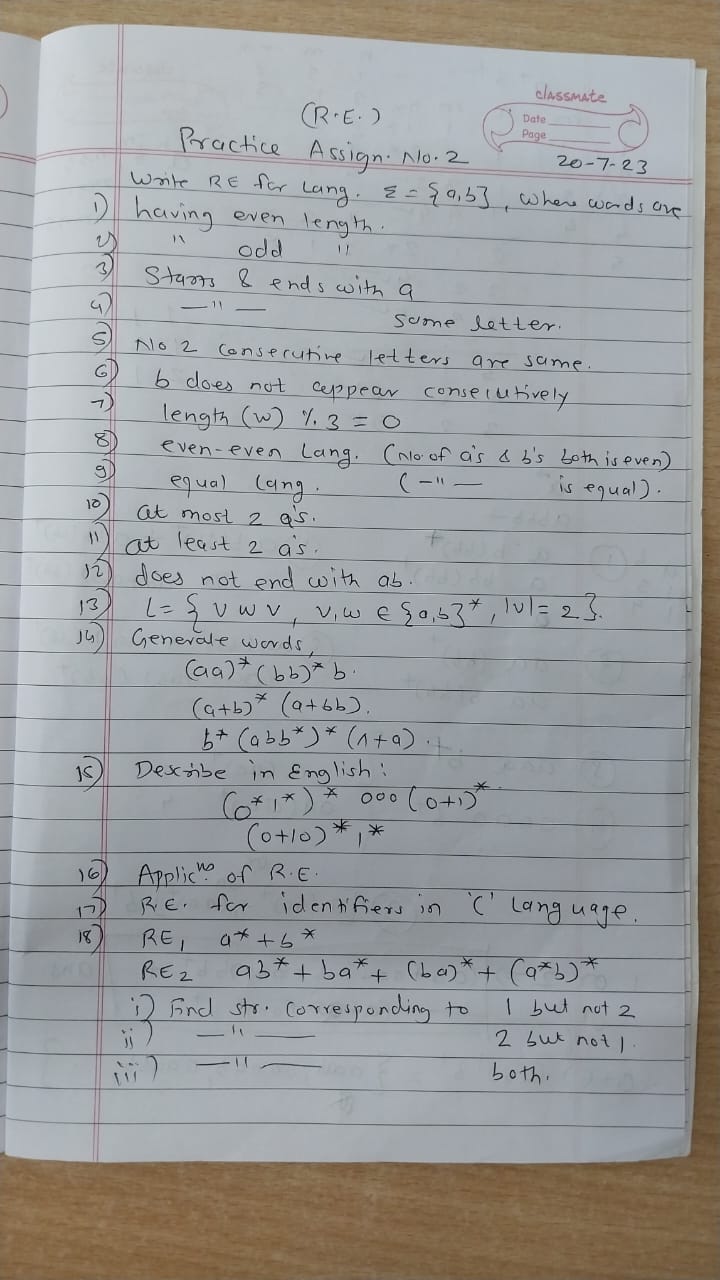 classmate
Date
Page
(R.E.)
Practice Assign. No. 2
20-7-23
Write RE for Lang. Σ = {a,b}, where words are
1) having even length.
2) " odd "
3) Starts & ends with a
4) —"— same letter.
5) No 2 consecutive letters are same.
6) b does not appear consecutively
7) length (w) % 3 = 0
8) even-even Lang. (No. of a's & b's both is even)
9) equal Lang. (—"— is equal).
10) at most 2 a's.
11) at least 2 a's.
12) does not end with ab.
13) L = { v w v, v,w ∈ {a,b}*, |v| = 2 }.
14) Generate words,
(aa)* (bb)* b.
(a+b)* (a+bb).
b* (abb*)* (Λ+a).
15) Describe in English:
(0*1*)* 000 (0+1)*
(0+10)* 1*
16) Applicns. of R.E.
17) R.E. for identifiers in 'C' Language.
18) RE1 a* + b*
RE2 ab* + ba* + (ba)* + (a*b)*
i) Find str. corresponding to 1 but not 2
ii) —"— 2 but not 1.
iii) —"— both.